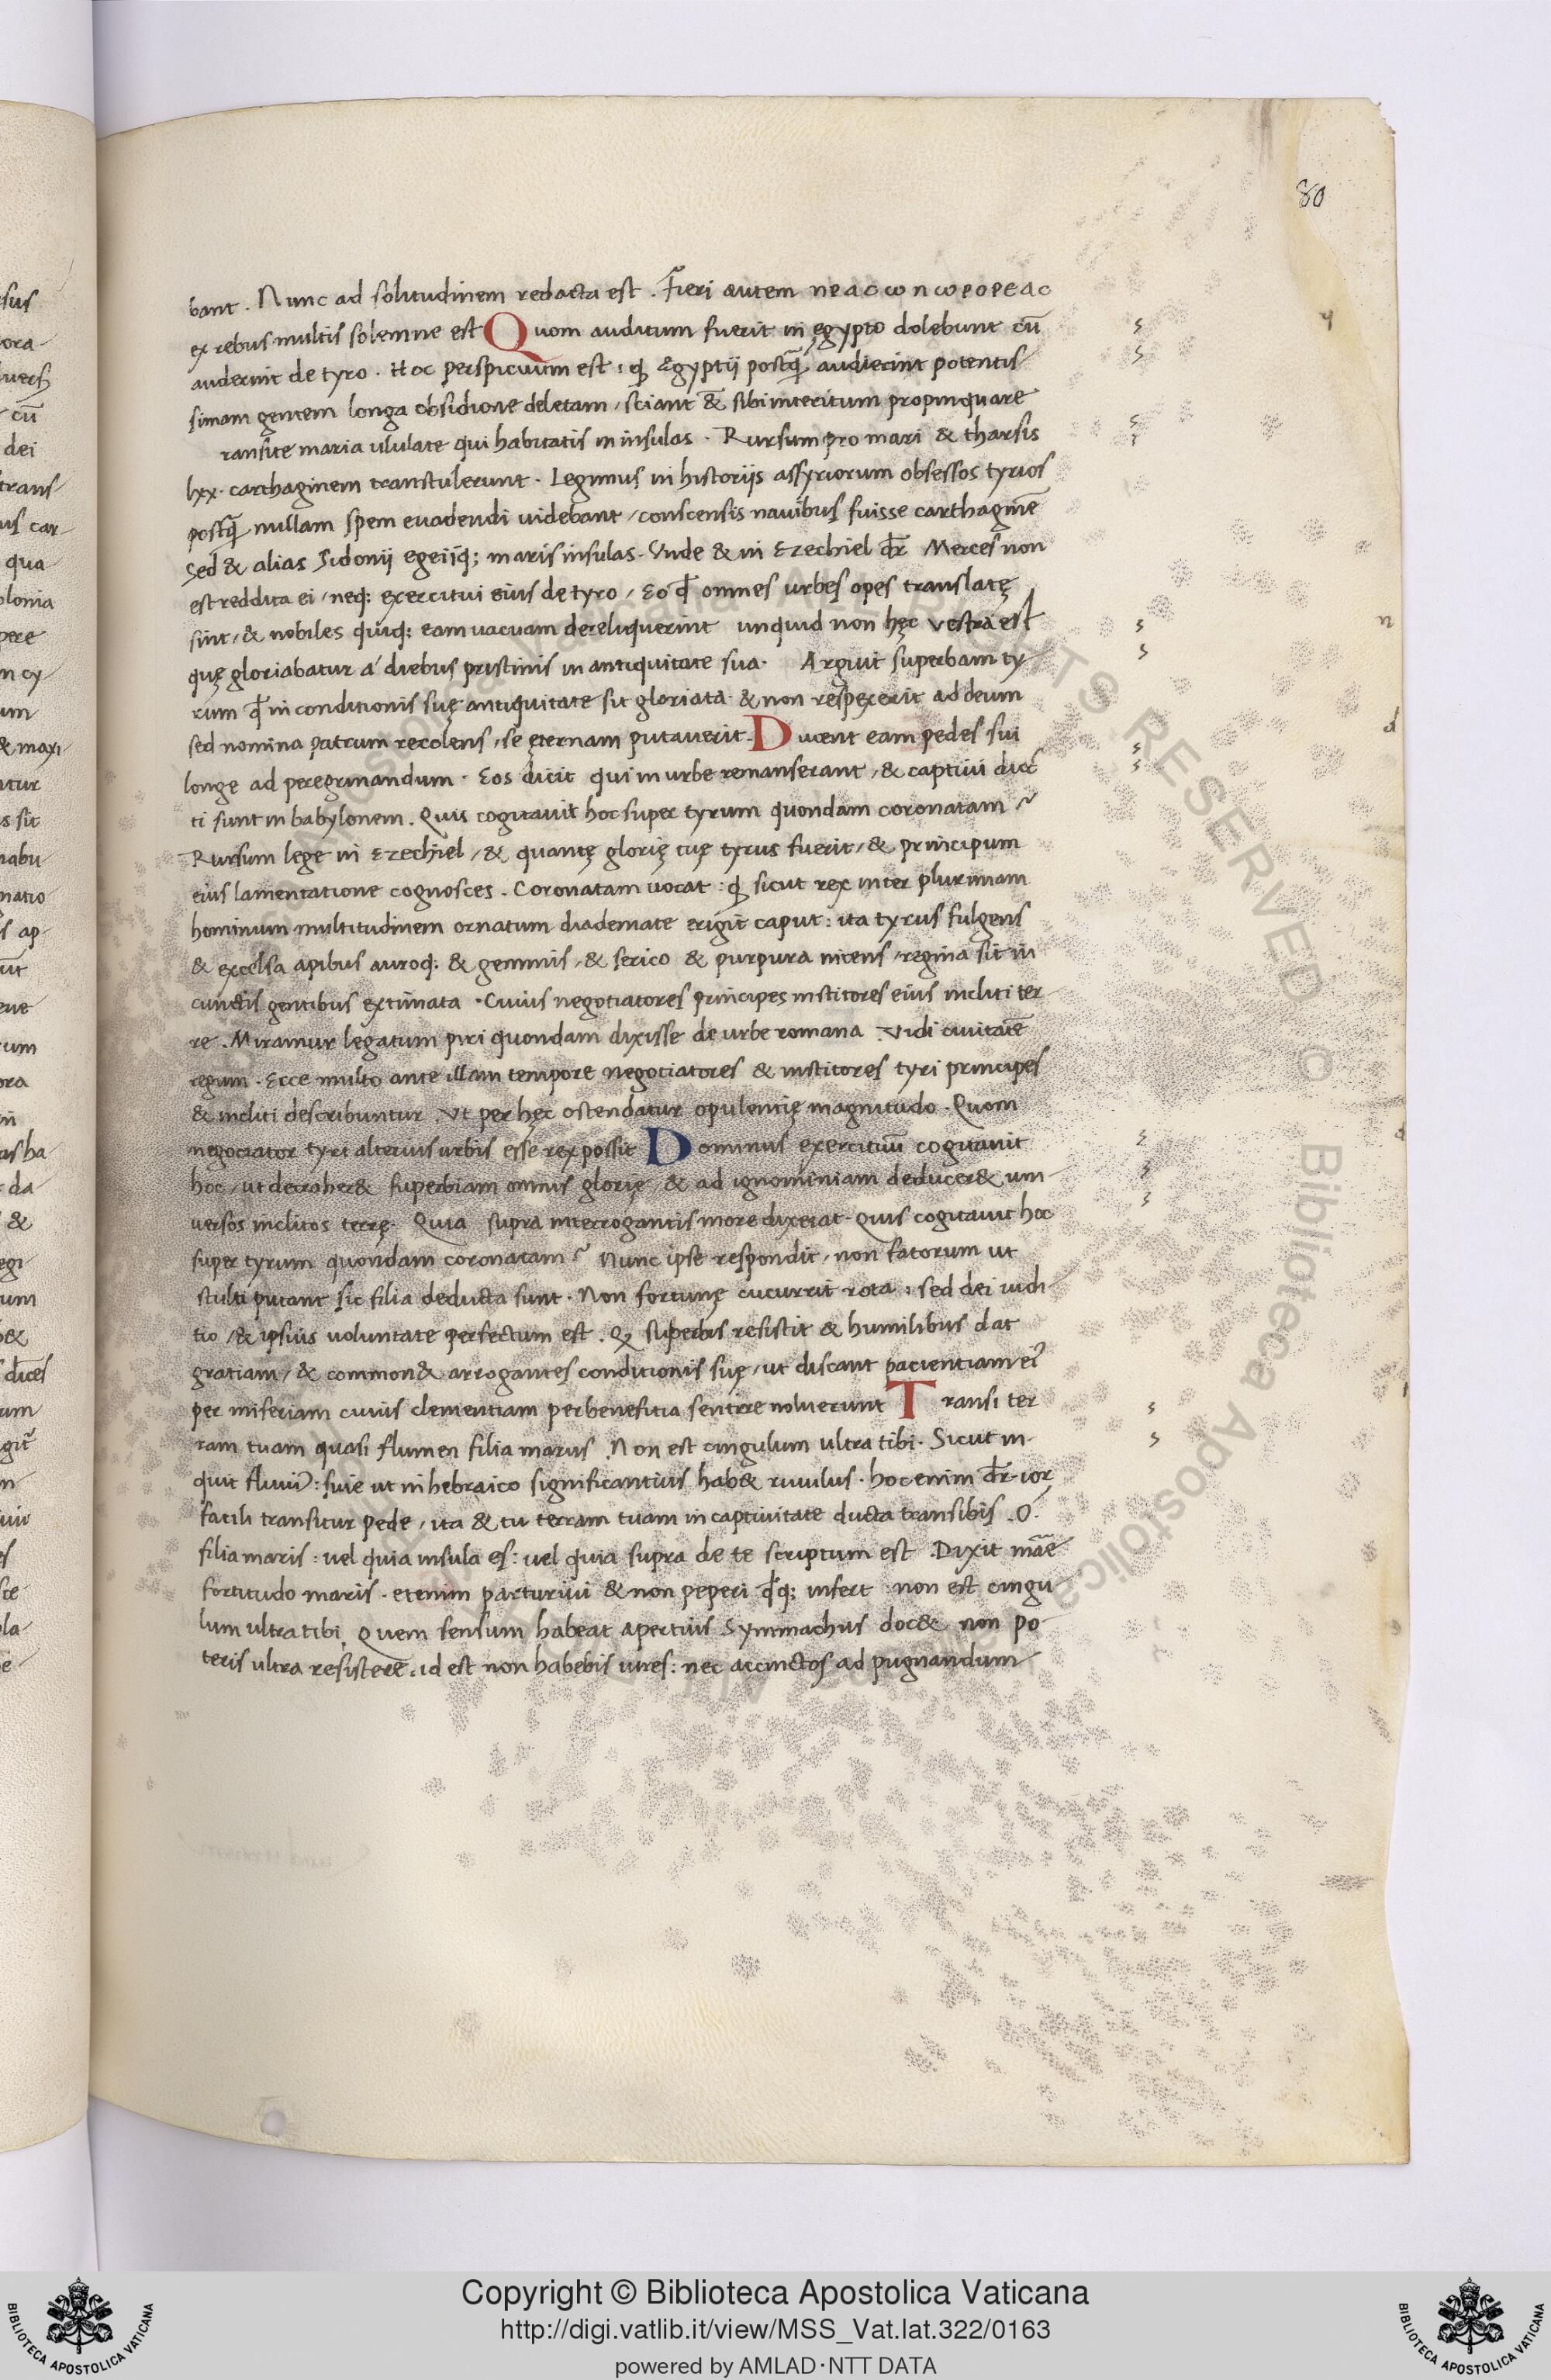 80
bant . Nunc ad solitudinem redacta est . Fieri autem neacωnωpopeac
ex rebus multis solemne est Quom auditum fuerit in ęgypto dolebunt cū
audierint de tyro . Hoc perspicuum est : ꝙ Egyptij postꝙ̃ audierint potentis
simam gentem longa obsidione deletam / sciant & sibi interitum propinquare
ransite maria ululate qui habitatis in insulas . Rursum pro mari & tharsis
lxx . carthaginem transtulerunt . Legimus in historijs assyriorum obsessos tyrios
postꝙ̃ nullam spem euadendi uidebant / conscensis navibus fuisse carthaginē
Sed & alias Sidonij egeijq; maris insulas . Vnde & in Ezechiel dr̄ Merces non
est reddita ei / neq; exercitui eius de tyro / Eo ꝙ omnes urbes opes translatę
sint / & nobiles quiq; eam uacuam dereliquerint unquid non hęc vestra est
quę gloriabatur á diebus pristinis in antiquitate sua . Arguit superbam ty
rum ꝙ in conditionis suę antiquitate sit gloriata & non respexerit ad deum
sed nomina patrum recolens / se ęternam putaverit . Ducent eam pedes sui
longe ad peregrinandum . Eos dicit qui in urbe remanserant / & captiui duc
ti sunt in babylonem . Quis cogitauit hoc super tyrum quondam coronatam ?
Rursum lege in Ezechiel / & quantę glorię tuę tyrus fuerit / & principum
eius lamentatione cognosces . Coronatam uocat : ꝙ sicut rex inter plurimam
hominum multitudinem ornatum diademate erigit caput : ita tyrus fulgens
& excelsa apibus auroq; & gemmis / & serico & purpura nitens / regina sit in
cunctis gentibus extimata . Cuius negotiatores principes institores eius incliti ter
re . Miramur legatum piri quondam dixisse de urbe romana . Vidi ciuitatē
regum . Ecce multo ante illam tempore negociatores & institores tyri principes
& incliti describuntur . Vt per hęc ostendatur opulentię magnitudo . Quom
negociator tyri alterius urbis esse rex possit Dominus exercituū cogitauit
hoc / ut detraher& superbiam omnis glorię / & ad ignominiam deducer& uni
uersos inclitos terrę . Quia supra interrogantis more dixerat . Quis cogitauit hoc
super tyrum quondam coronatam ? Nunc ipse respondit / non fatorum ut
stulti putant sic filia deducta sunt . Non fortunę cucurrit rota : sed dei iudi
tio / & ipsius uoluntate perfectum est . Q superbis resistit & humilibus dat
gratiam / & common& arrogantes conditionis suę / ut discant pacientiam ei
per miseriam cuius clementiam per benefitia sentire noluerunt Transi ter
ram tuam quasi flumen filia maris . Non est cingulum ultra tibi . Sicut in
quit fluui : siue ut in hebraico significantius hab& riuulus . hoc enim dr̄ ior
facili transitur pede / ita & tu terram tuam in captiuitate ducta transibis . O
filia maris : uel quia insula es : uel quia supra de te scriptum est . Dixit māe
fortitudo maris . etenim parturiui & non peperi ꝙq; infert : non est cingu
lum ultra tibi . Quem sensum habeat apertius Symmachus doc& non po
teris ultra resistere : id est non habebis uires : nec accinctos ad pugnandum
Copyright © Biblioteca Apostolica Vaticana
http://digi.vatlib.it/view/MSS_Vat.lat.322/0163
powered by AMLAD·NTT DATA